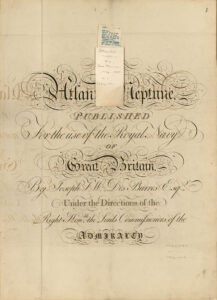 Atlan Neptune,
PUBLISHED
For the use of the Royal Navy
OF
Great Britain,
By Joseph F. W. Des Barres Esqr.
Under the Directions of the
Right Honble. the Lords Commissioners of the
ADMIRALTY